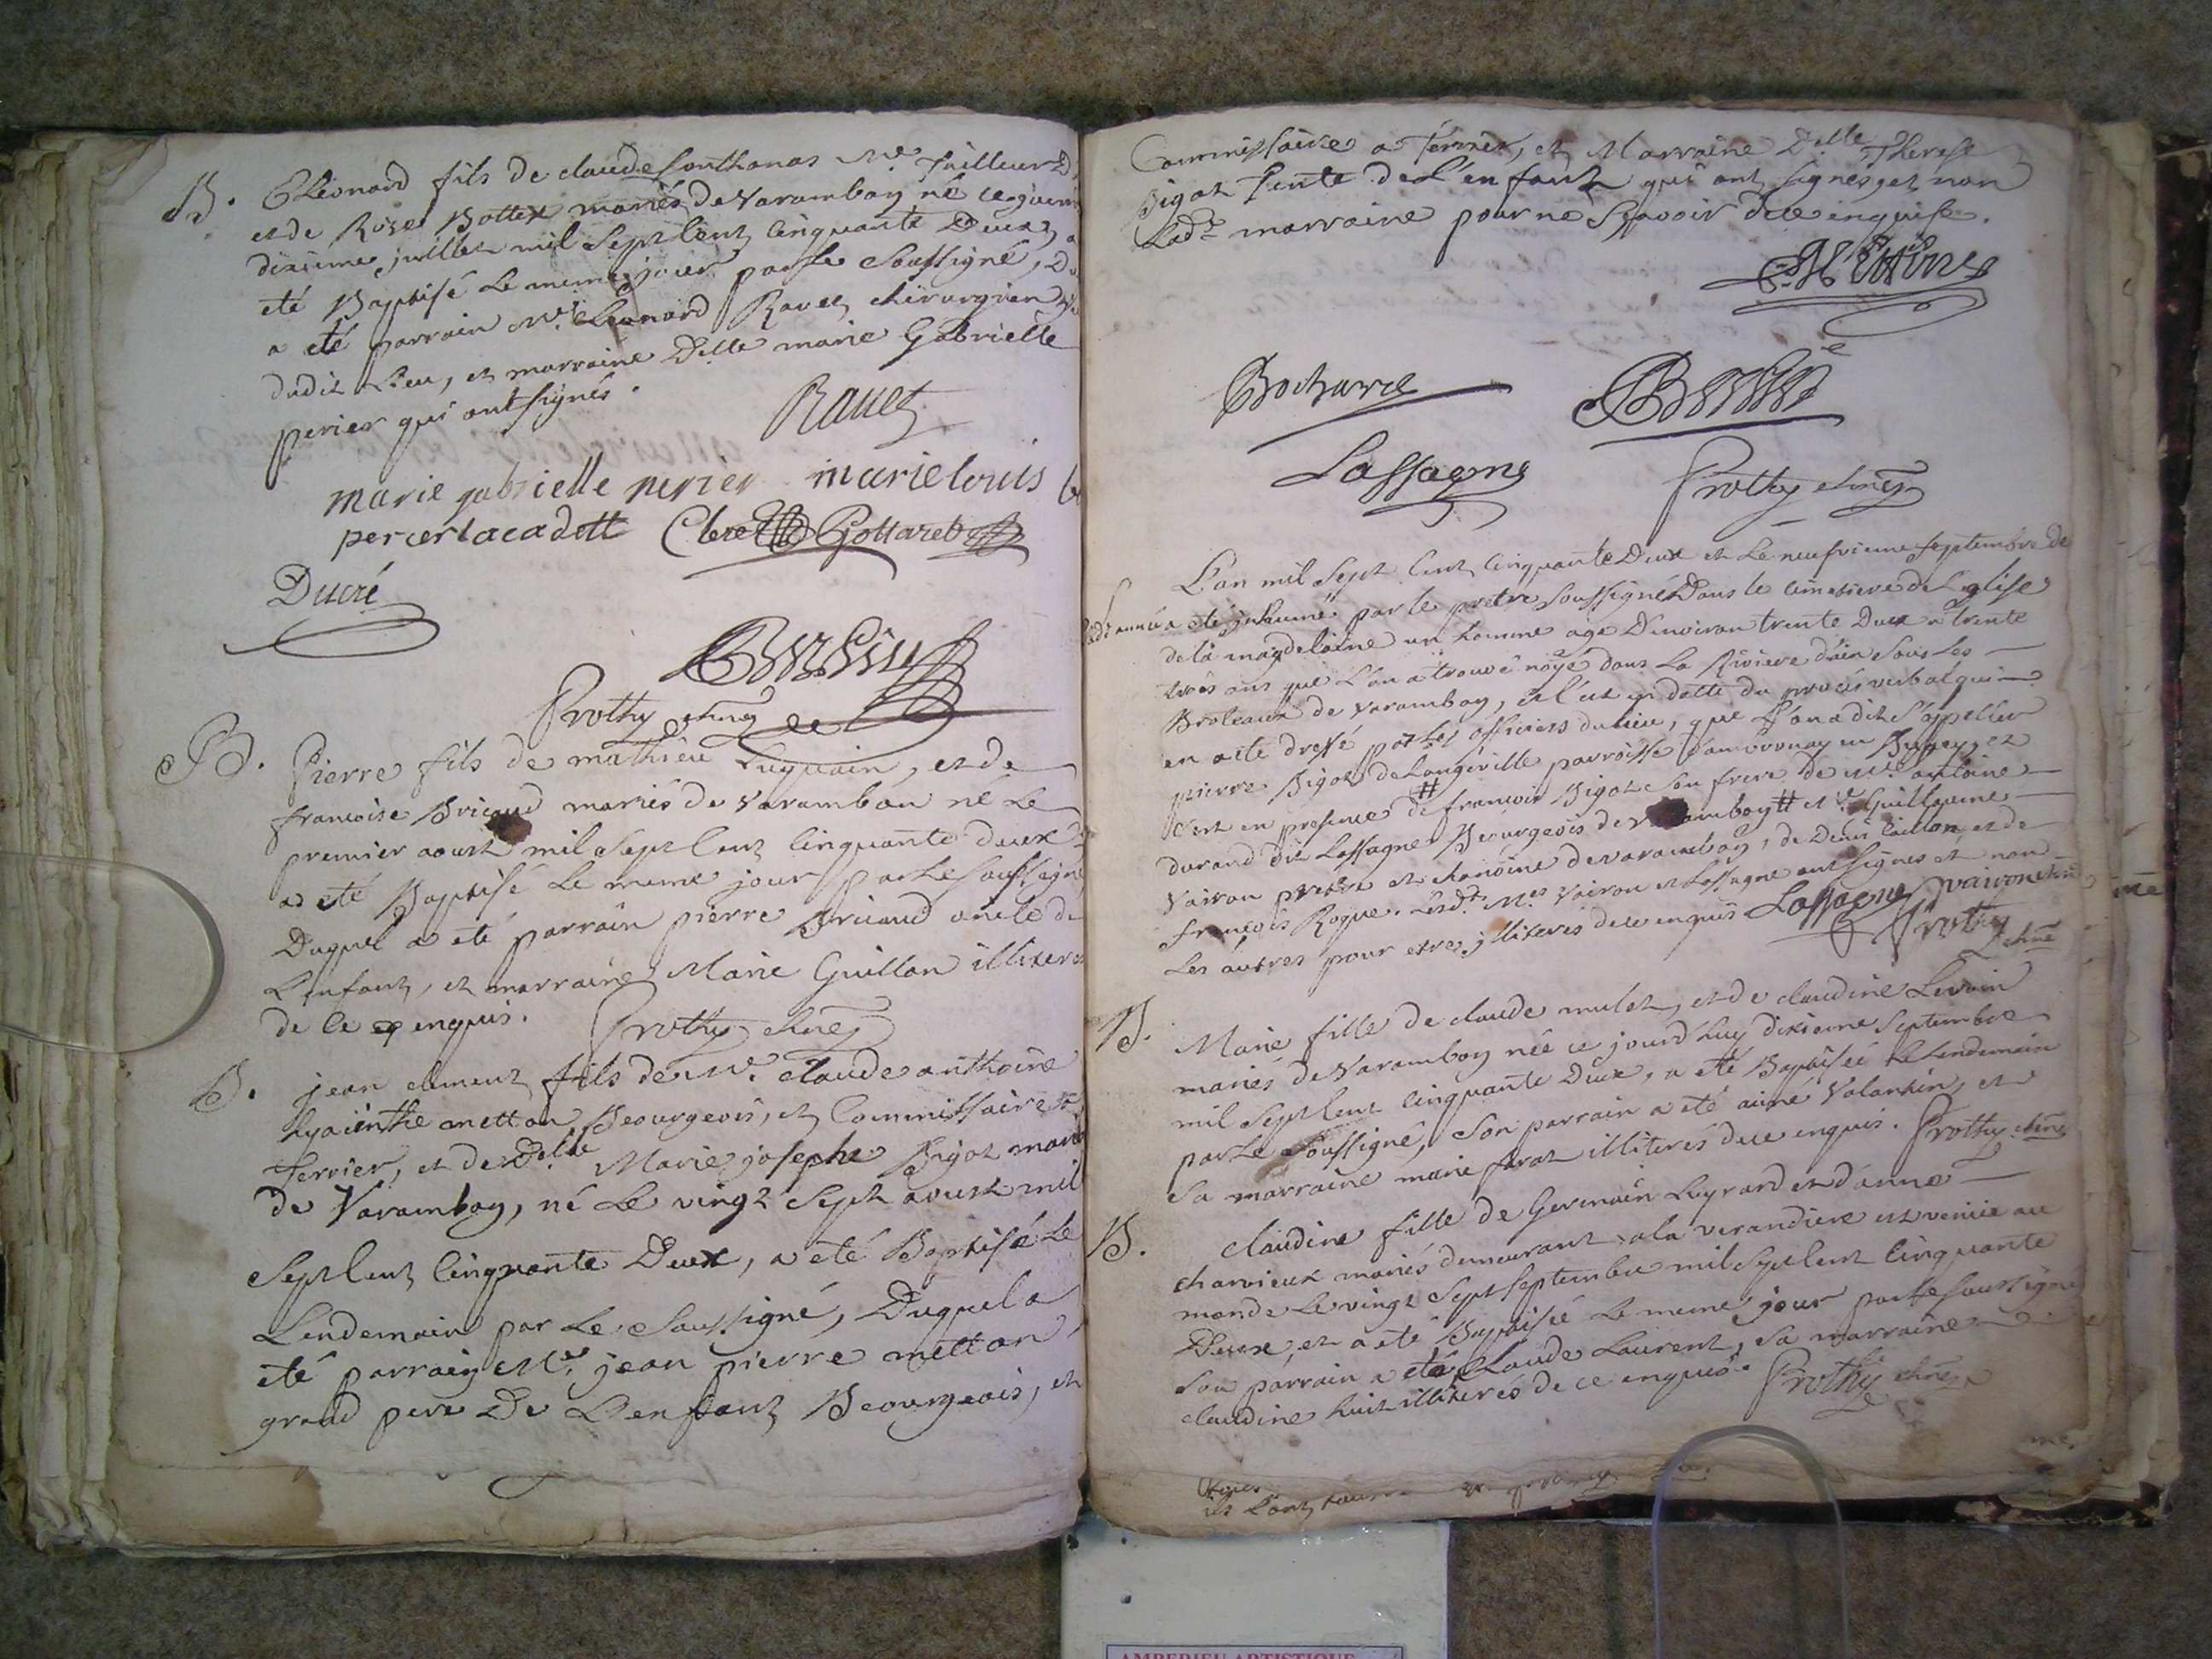 B. Leonard fils de claude fonthanas Mre Tailleur D
et de Rose Bottex mariés de Varambon né ce
dixieme juillet mil Sept Cent Cinquante Deux, a
eté Baptisé Le meme jour par Le Soussigné, D
a eté parrain Mre Leonard Ravet chirurgien
dudit Lieu, et marraine Delle marie Gabrielle
perier qui ont signés.
Ravet
marie gabrielle perier marie louis
percerlacadett Gottaret
Ducré
Prothy chne
B. Pierre fils de mathieu Luquain, et de
francoise Bricaud mariés de Varambon né Le
premier aoust mil Sept Cent Cinquante deux
a eté Baptisé Le meme jour par Le Soussigné
Duquel a eté parrain pierre Bricaud oncle de
L'enfant, et marraine Marie Guillon illiteres
de ce enquis. Prothy chne
B. jean clement fils de Mre claude anthoine
hyacinthe metton Bourgeois, et Commissaire a
Terrier, et de Delle Marie josephe Bigot mari
de Varambon, né Le vingt Sept aoust mil
Sept Cent Cinquante Deux, a eté Baptisé Le
Lendemain par Le Soussigné, Duquel a
eté parrain Mre jean pierre metton
grand pere De L'enfant Bourgeois, et
Commissaire a Terrier, et Marraine Delle Therese
Bigot tente de L'enfant qui ont signés, et non
Ladte marraine pour ne Sçavoir de ce enquise.
Bochard
Lassagne Prothy chne
L'an mil Sept Cent Cinquante Deux et Le neufvieme Septembre de
Ladt année a eté inhumé par le pretre Soussigné Dans le cimetiere de L'eglise
de la magdelaine un homme agé D'environ trente Deux a trente
trois ans que L'on a trouvé noyé dans La Riviere d'ain Sous Les
Broteaux de Varambon, et c'est en datte du procés verbal qui
en a eté dressé par Les officiers du Lieu, que L'on a dit s'appeller
pierre Bigot de Longeville parroisse d'ambronay en Bugey, et
c'est en presence # de francois Bigot Son frere de Mre antoine
durand dit Lassagne Bourgeois de Varambon # et Guillaume
Vairon pretre et chanoine de Varambon, de Denis Caillon, et de
francois Roque. Lesdt Mrs Vairon et Lassagne ont signés et non
Les autres pour etre illiterés de ce enquis Lassagne Vairon
Prothy chne
B. Marie fille de claude mulet, et de claudine Levrain
mariés de Varambon née ce jourd'huy dixieme Septembre
mil Sept Cent Cinquante Deux, a eté Baptisée Le Lendemain
par Le Soussigné, Son parrain a eté aimé Valantin, et
Sa marraine marie farat illiterés de ce enquis. Prothy chne
B. claudine fille de Germain Luyrard et d'anne
charvieux mariés demeurant a la verandiere est venüe au
monde Le vingt Sept Septembre mil Sept Cent Cinquante
Deux, et a eté Baptisée Le meme jour par Le Soussigné
Son parrain a eté Claude Laurent, Sa marraine
claudine huit illiterés de ce enquis. Prothy chne
AMBERIEU ARTISTIQUE